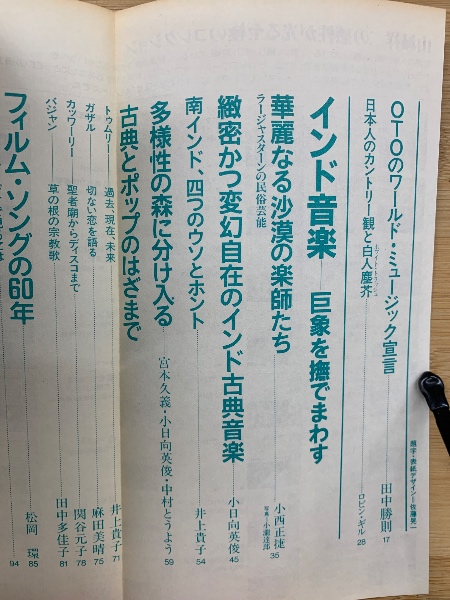 題字・表紙デザイン―佐藤晃一
OTOのワールド・ミュージック宣言 田中勝則 17
日本人のカントリー観と白人塵芥 ロビン・ギル 28
ホワイト・トラッシュ
インド音楽――巨象を撫でまわす
華麗なる沙漠の楽師たち 小西正捷 35
ラージャスターンの民俗芸能 写真・小瀧達郎
緻密かつ変幻自在のインド古典音楽 小日向英俊 45
南インド、四つのウソとホント 井上貴子 54
多様性の森に分け入る 宮本久義・小日向英俊・中村とうよう 59
古典とポップのはざまで
トゥムリー 過去、現在、未来 井上貴子 71
ガザル 切ない恋を語る 麻田美晴 75
カッワーリー 聖者廟からディスコまで 関谷元子 78
バジャン 草の根の宗教歌 田中多佳子 81
フィルム・ソングの60年 松岡環 85
94